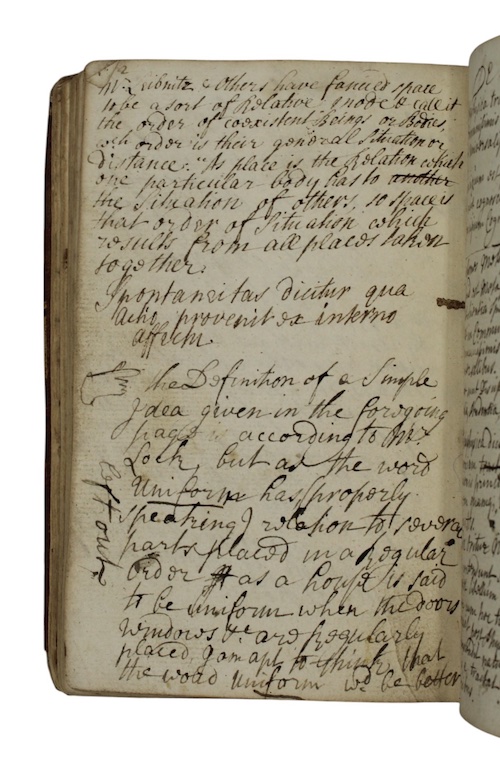 Mr Leibnitz & Others have fancied space
to be a sort of Relative mode & call it
the order of coexistent Beings or Bodies,
wch order is their general Situation or
distance. "As place is the Relation which
one particular body has to another
the Situation of others, so space is
that order of Situation which
results from all places taken
together.
Spontaneitas dicitur qua
actio provenit ex interno
The Definition of a Simple
Idea given in the foregoing
page is according to Mr
Lock, but as the word
Uniform has (properly
speaking) relation to several
parts placed in a regular
Order as a house is said
to be Uniform when the doors
Windows &c are Regularly
placed, I am apt to think, that
the word Uniform wd be better
left out